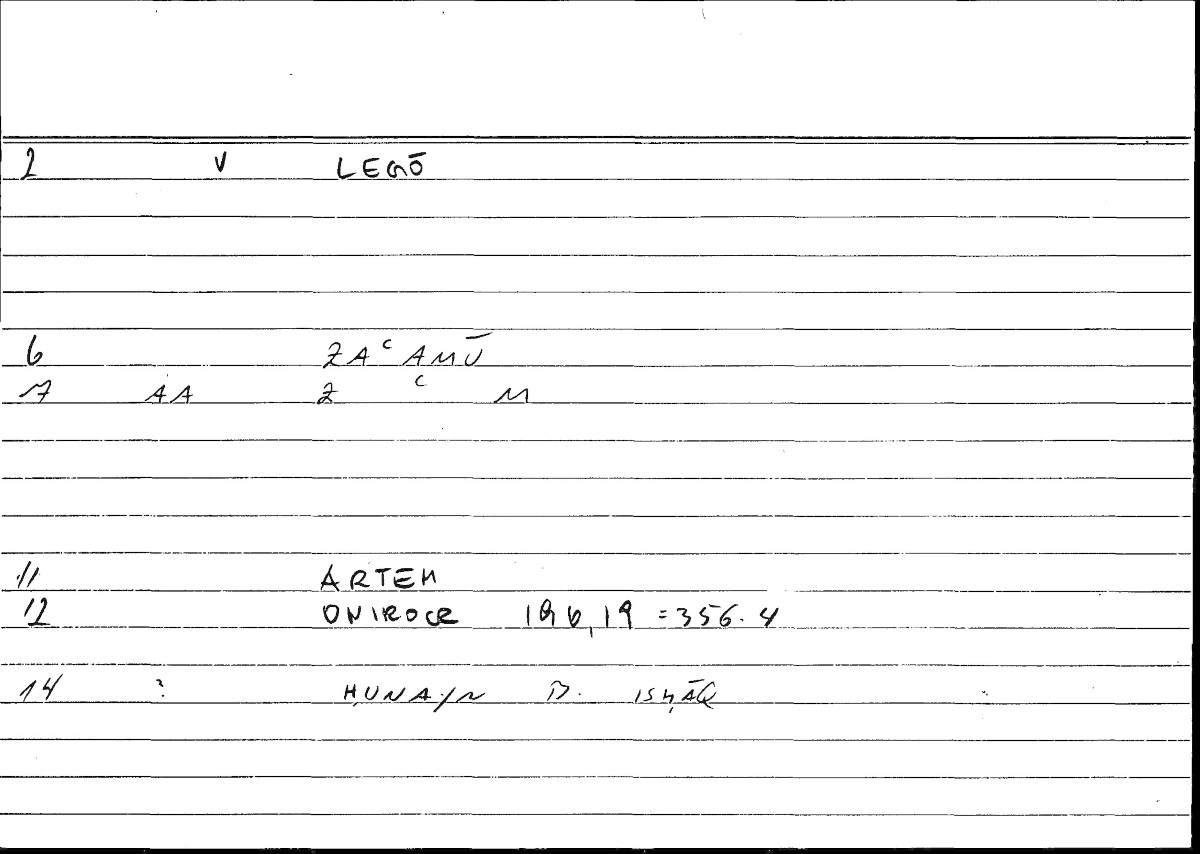 2 V LEGŌ
6 ZAᶜAMŪ
7 AA Z ᶜ M
11 ARTEM
12 ONIROCR 196,19 =356.4
14 : ḤUNAYN B. ISḤĀQ